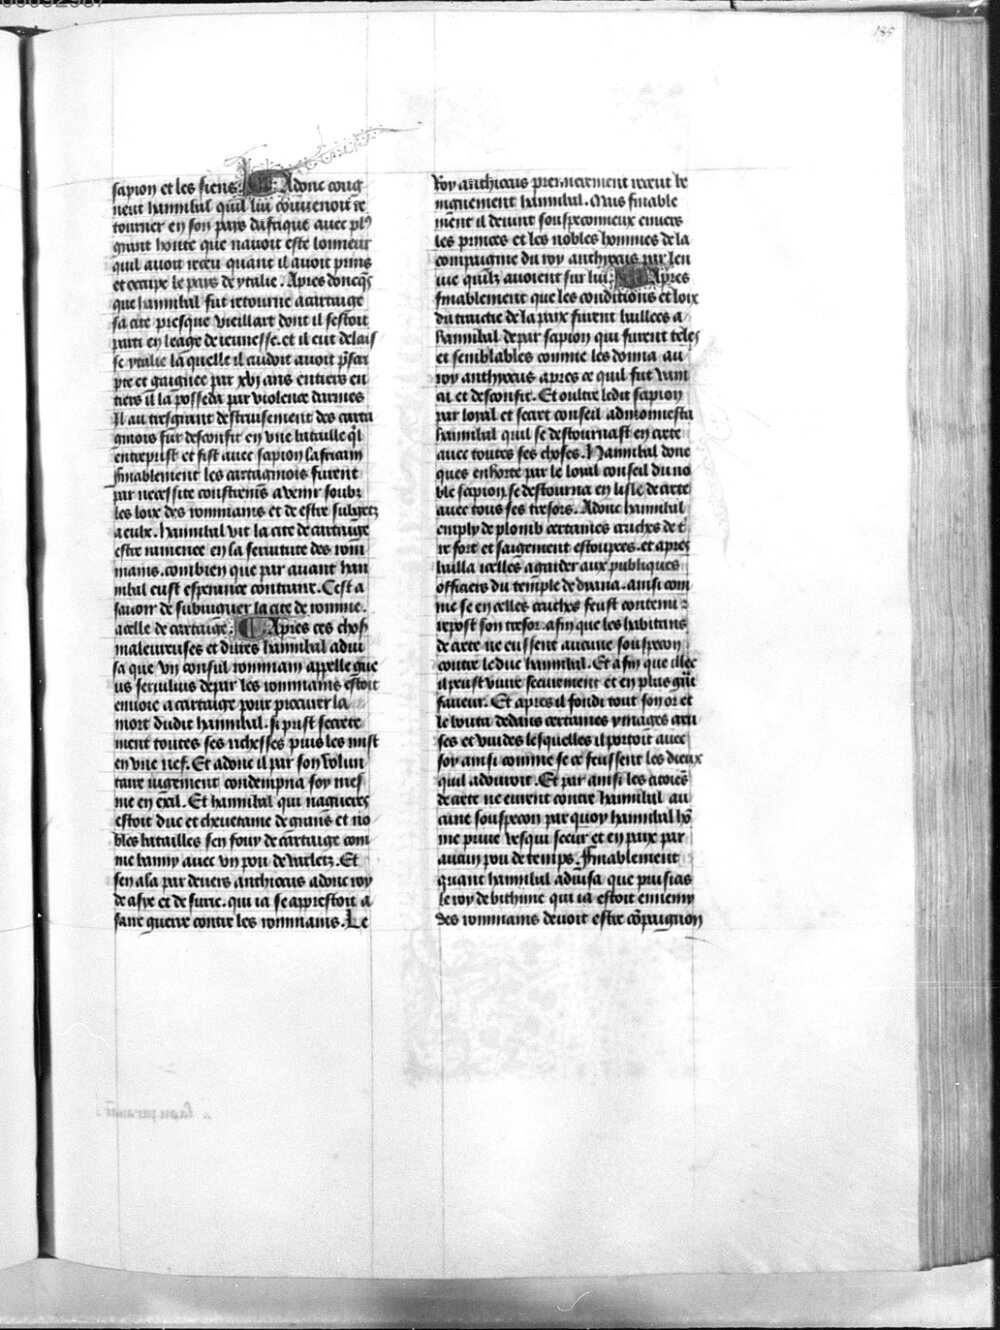 185
sapion et les siens. Adonc cong
neut hannibal quil lui couvenoit re
tourner en son pays daffrique avec pl9
grant honte que navoit este lonneur
quil avoit receu quant il avoit prins
et occupe le pays de ytalie. Apres doncqs
que hannibal fut retourne a cartaige
sa cite presque vieillart dont il sestoit
parti en leage de jeunesse. et il eut delais
se ytalie la quelle il cuidoit avoir
pte et gaignee par xvi ans entiers en
tiers il la posseda par violence darmes
Il au tresgrant destruisement des carta
ginois fut desconfit en une bataille ql
entreprist et fist avec sapion laffricain
finablement les cartaginois furent
par necessite constreins a venir soubz
les loix des rommains et de estre subgetz
a eulx. hannibal vit la cite de cartaige
estre ramenee en la servitute des rom
mains. combien que par avant han
nibal eust esperance contraire. Cest a
savoir de subiuguer la cite de romme.
a celle de cartaige. Apres ces chos
maleureuses et dures hannibal advi
sa que un consul rommain appelle gne
us servilius depar les rommains estoit
envoie a cartaige pour procurer la
mort dudit hannibal. si prist secrete
ment toutes ses richesses puis les mist
en une nef. Et adonc il par son volun
taire iugement condempna soy mes
me en exil. Et hannibal qui nagueres
estoit duc et chevetaine de grans et no
bles batailles sen fouy de cartaige com
me banny avec un pou de varletz. Et
sen ala par devers anthiocus adonc roy
de asye et de surie. qui ia se apprestoit a
faire guerre contre les rommains. Le
Roy anthiocus premierement receut be
nignement hannibal. Mais finable
ment il devint souspeconneux envers
les princes et les nobles hommes de la
compaignie du roy anthiocus par len
vie quilz avoient sur lui. Apres
finablement que les conditions et loix
du traictie de la paix furent baillees a
hannibal depar sapion qui furent teles
et semblables comme les donna au
roy anthiocus apres ce quil fut vain
cu et desconfit. Et oultre ledit sapion
par loyal et secret conseil admonnesta
hannibal quil se destournast en crete
avec toutes ses choses. Hannibal donc
ques enhorte par le loyal conseil du no
ble sapion se destourna en lisle de crete
avec tous ses tresors. Adonc hannibal
emply de plomb certaines cruches de t
re fort et saigement estoupees. et apres
bailla icelles a garder aux publiques
officiers du temple de dyana. ainsi com
me se en celles cruches feust contenu
repost son tresor. afin que les habitans
de crete ne eussent aucune souspecon
contre le duc hannibal. Et afin que illec
il peust vivre seurement et en plus gnt
faveur. Et apres il fondi tout son or et
le bouta dedans certaines ymages creu
ses et vuides lesquelles il portoit avec
soy ainsi comme se ce feussent les dieux
quil adouroit. Et par ainsi les citoiens
de crete ne eurent contre hannibal au
cune souspecon par quoy hannibal ho
me prive vesqui seeur et en paix par
aucun pou de temps. finablement
quant hannibal advisa que prusias
le roy de bithinie qui ia estoit ennemy
des rommains devoit estre compaignon